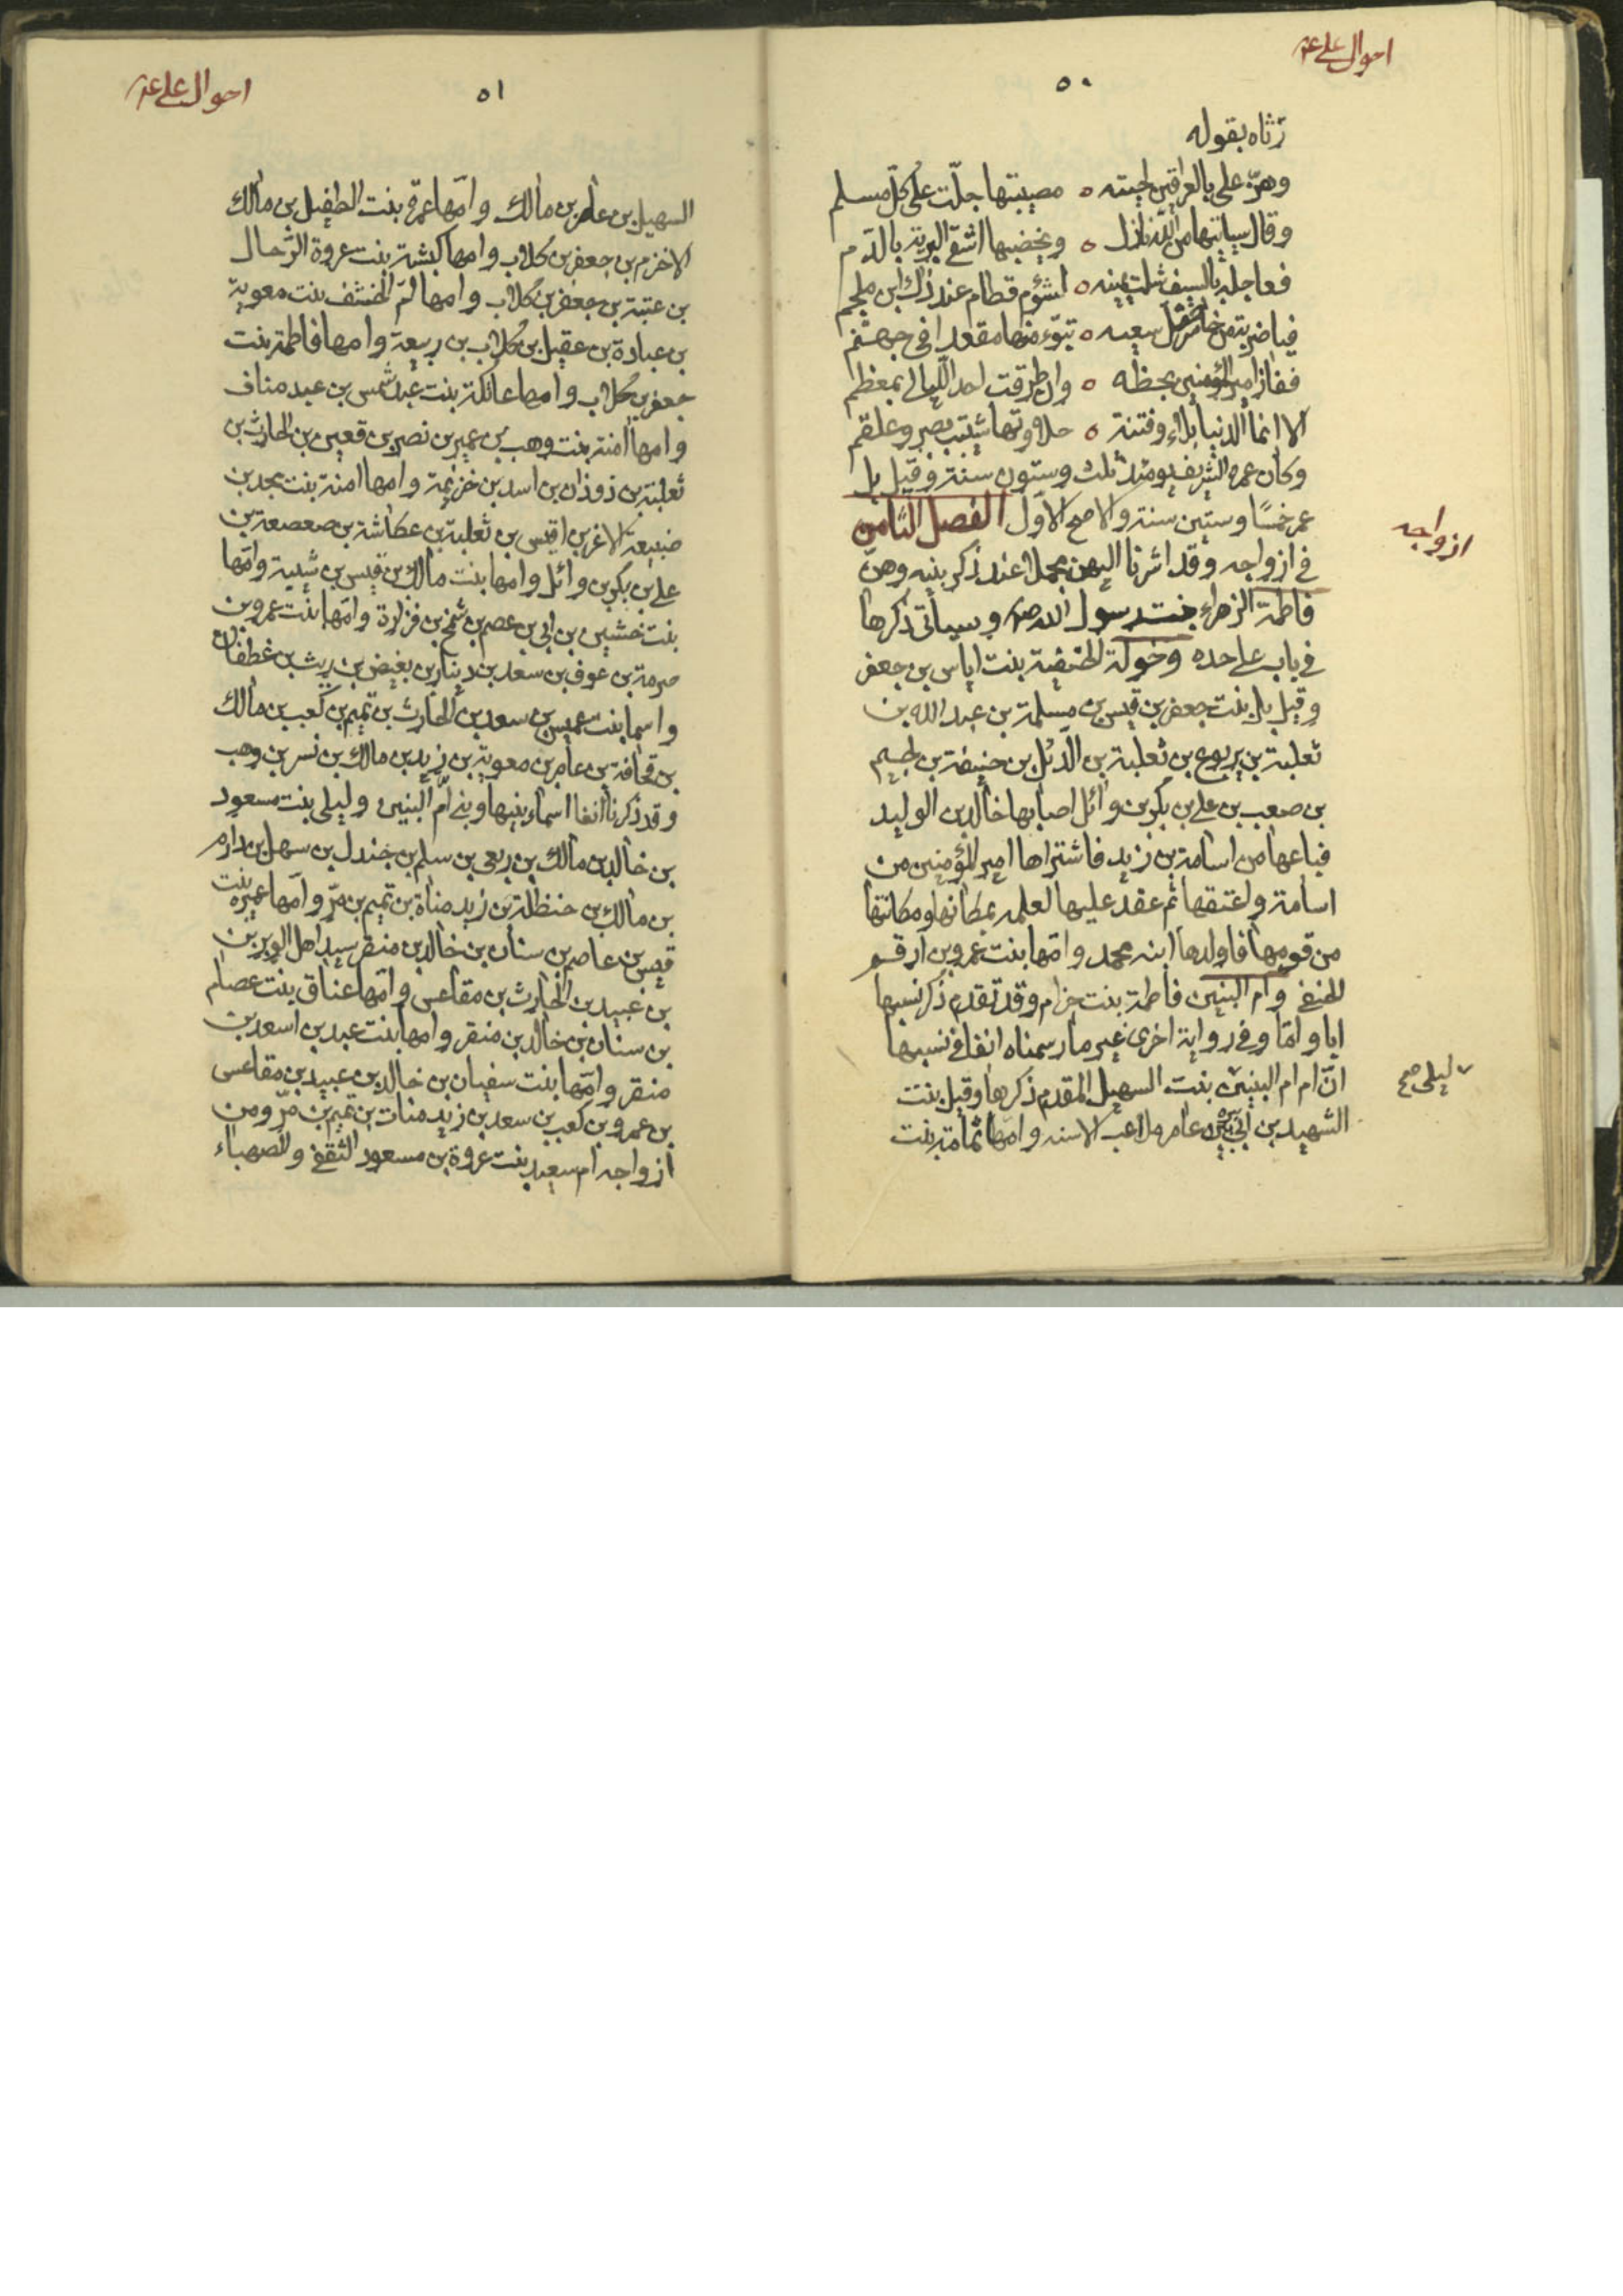 احوال علي ع
٥٠
رثاه بقوله
وهزّ علي بالعراقين لحيته ٥ مصيبتها جلّت على كلّ مسلم
وقال سياتيها من الله نازل ٥ ويخضبها اشقى البرية بالدّم
فعاجله بالسيف شلت يمينه ٥ لشؤم قطام عند ذاك ابن ملجم
فيا ضربة من خاسر ضل سعيه ٥ تبوّء منها مقعدا في جهنّم
ففاز امير المؤمنين بحظه ٥ وان طرقت احد الليالي بمعظم
الا انما الدنيا بلاء وفتنة ٥ حلاوتها شيبت بصبر وعلقم
وكان عمره الشريف يومئذ ثلث وستون سنة وقيل بل
عمر خمسًا وستين سنة والاصح الاول الفصل الثامن
ازواجه
في ازواجه وقد اشرنا اليهن مجملا عند ذكر بنيه وهنّ
فاطمة الزهراء بنت رسول الله ص وسيأتي ذكرها
في باب على حده وخولة الحنفية بنت اياس بن جعفر
وقيل بل بنت جعفر بن قيس بن مسلمة بن عبد الله بن
ثعلبة بن يربوع بن ثعلبة بن الدّئل بن حنيفة بن لجيم
بن صعب بن علي بن بكر بن وائل اصابها خالد بن الوليد
فباعها من اسامة بن زيد فاشتراها امير المؤمنين من
اسامة واعتقها ثم عقد عليها لعلمه بمكانها ومكانتها
من قومها فاولدها ابنه محمد وامّها بنت عمرو بن ارقم
الحنفي وام البنين فاطمة بنت حزام وقد تقدم ذكر نسبها
ابا واما وفي رواية اخرى غير ما رسمناه انفا في نسبها
انّ ام ام البنين بنت السهيل المقدم ذكرها وقيل بنت
ليلى صح
الشهيد بن ابي عامر ملاعب الاسنه وامّها ثمامة بنت
احوال علي ع
٥١
السهيل بن عامر بن مالك وامّها عمرة بنت الطفيل بن مالك
الاخزم بن جعفر بن كلاب وامها كبشة بنت عروة الرّحال
بن عتبة بن جعفر بن كلاب وامها امّ الخشف بنت معوية
بن عبادة بن عقيل بن كلاب بن ربيعة وامها فاطمة بنت
جعفر بن كلاب وامها عاتكة بنت عبد شمس بن عبد مناف
وامها امنة بنت وهب بن عمير بن نصر بن قعين بن الحارث بن
ثعلبة بن ذوذان بن اسد بن خزيمة وامها امنة بنت بجد بن
ضبيعة الاغر بن اقيس بن ثعلبة بن عكاشة بن صعصعة بن
علي بن بكر بن وائل وامها بنت مالك بن قيس بن شيبة وامّها
بنت خشين بن ابي بن عصم بن شمخ بن فزارة وامّها بنت عمرو بن
صرمة بن عوف بن سعد بن دينار بن بغيض بن ريث بن غطفان
واسما بنت عميس بن سعد بن الحارث بن تميم بن كعب بن مالك
بن قحافة بن عامر بن معوية بن زيد بن مالك بن نسر بن وهب
وقد ذكرنا انفا اسماء بنيها وبني امّ البنين وليلى بنت مسعود
بن خالد بن مالك بن ربعي بن سلم بن جندل بن سهل بن دارم
بن مالك بن حنظلة بن زيد مناة بن تميم بن مرّ وامّها عميرة بنت
قيس بن عاصم بن سنان بن خالد بن منقر سيد اهل الوبر بن
بن عبيد بن الحارث بن مقاعس وامّها عناق بنت عصام
بن سنان بن خالد بن منقر وامها بنت عبد بن اسعد بن
منقر وامّها بنت سفيان بن خالد بن عبيد بن مقاعس
بن عمرو بن كعب بن سعد بن زيد منات بن تميم بن مرّ ومن
ازواجه ام سعيد بنت عروة بن مسعود الثقفي والصهباء